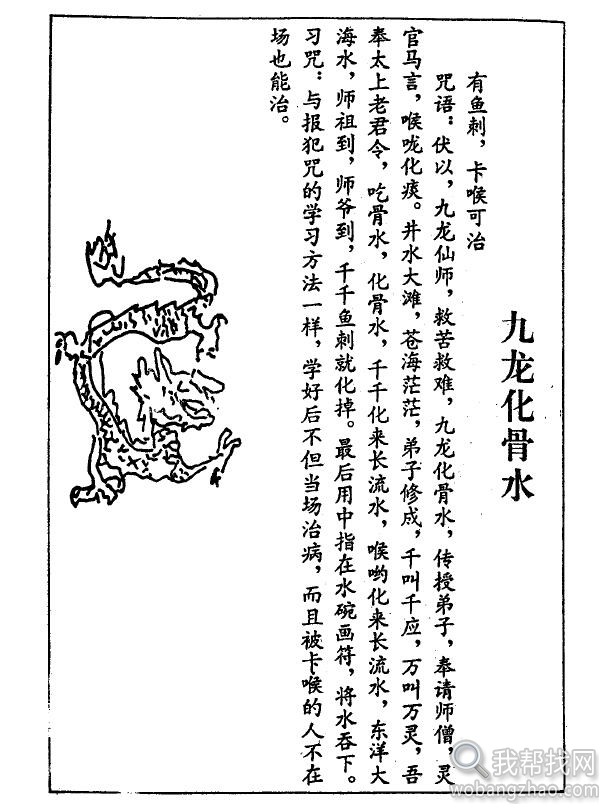 九龙化骨水
有鱼刺，卡喉可治
咒语：伏以，九龙仙师，救苦救难，九龙化骨水，传授弟子，奉请师僧，灵
官马言，喉咙化痰。井水大滩，苍海茫茫，弟子修成，千叫千应，万叫万灵，吾
奉太上老君令，吃骨水，化骨水，千千化来长流水，喉哟化来长流水，东洋大
海水，师祖到，师爷到，千千鱼刺就化掉。最后用中指在水碗画符，将水吞下。
习咒：与报犯咒的学习方法一样，学好后不但当场治病，而且被卡喉的人不在
场也能治。
我帮找网
wobangzhao.com